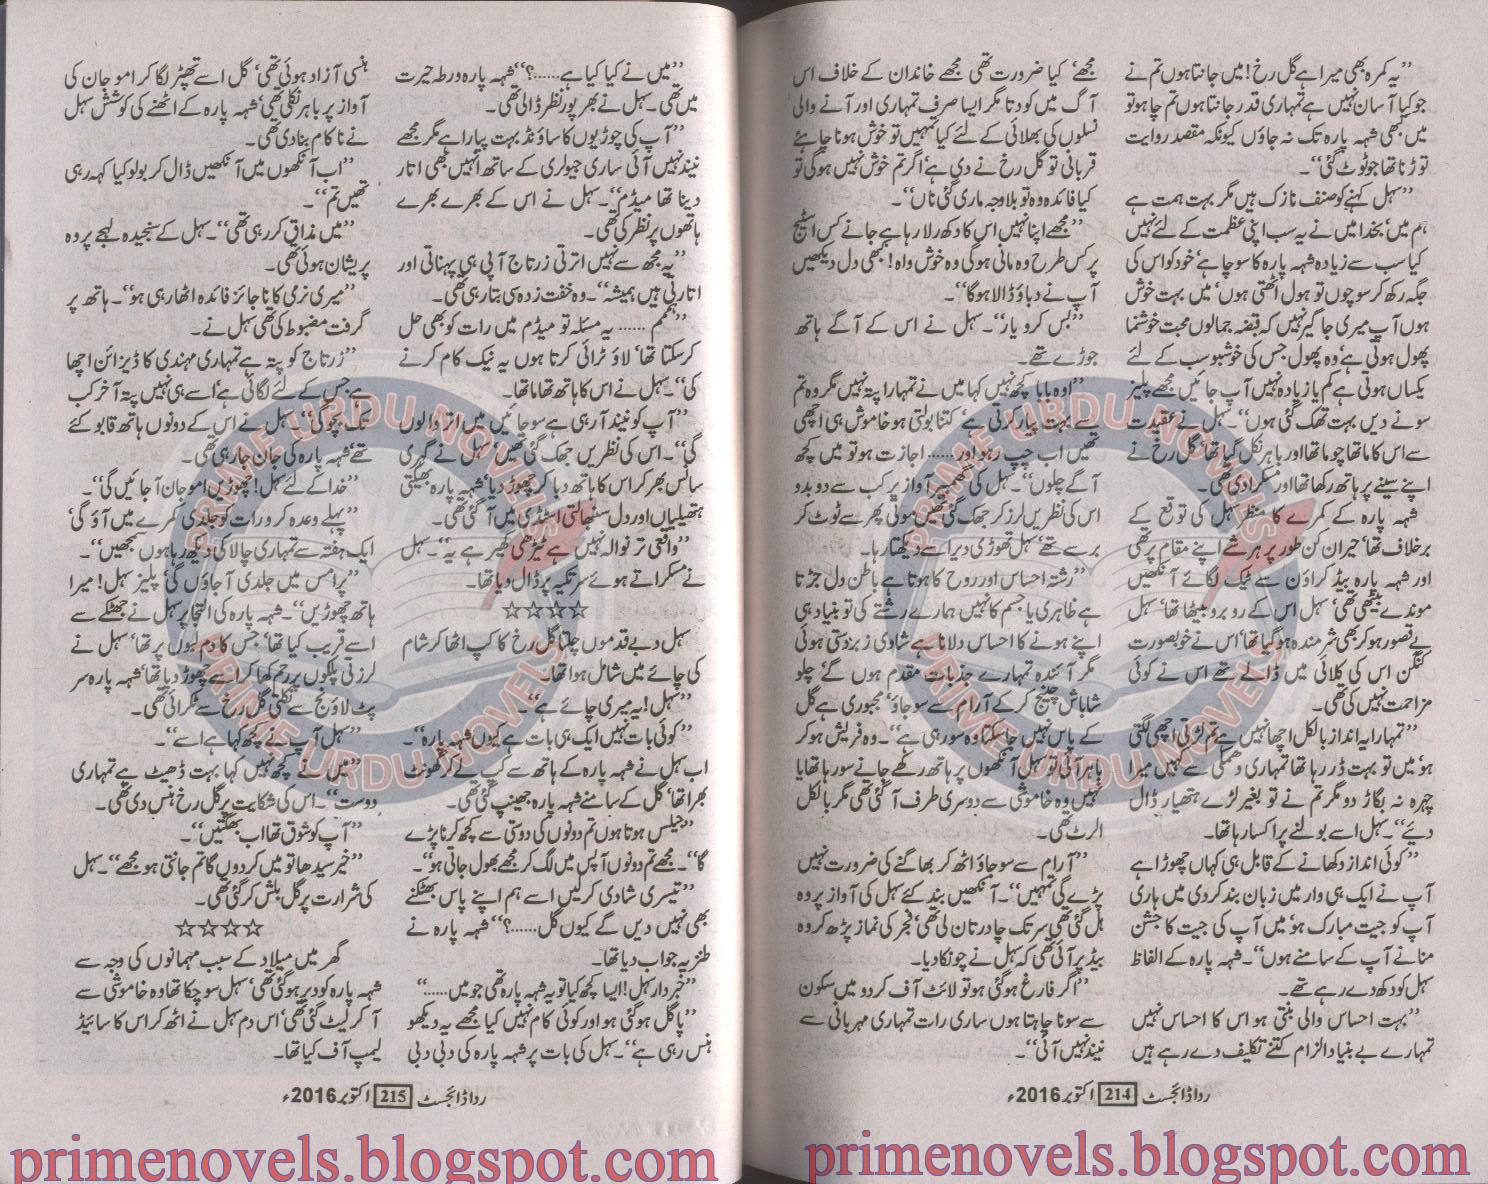 ’’یہ کمرہ بھی میرا ہے گل رخ! میں جانتا ہوں تم نے
جو کیا آسان نہیں ہے تمہاری قدر جانتا ہوں تم چاہو تو
میں کبھی شہہ پارہ تک نہ جاؤں کیونکہ مقصد روایت
توڑنا تھا جو ٹوٹ گئی‘‘۔
’’سہل کہنے کو صنف نازک ہیں مگر بہت ہمت ہے
ہم میں‘ بخدا میں نے یہ سب اپنی عظمت کے لئے نہیں
کیا سب سے زیادہ شہہ پارہ کا سوچا ہے‘ خود کو اس کی
جگہ رکھ کر سوچوں تو ہول اٹھتی ہوں‘ میں بہت خوش
ہوں آپ میری جاگیر نہیں کہ قبضہ جما لوں محبت خوشنما
پھول ہوتی ہے‘ وہ پھول جس کی خوشبو سب کے لئے
یکساں ہوتی ہے کم یا زیادہ نہیں آپ جائیں مجھے پلیز
سونے دیں بہت تھک گئی ہوں‘‘۔ سہل نے عقیدت
سے اس کا ماتھا چوما تھا اور باہر نکل گیا تھا‘ گل رخ نے
اپنے سینے پر ہاتھ رکھا تھا اور مسکرا دی تھی۔
شہہ پارہ کے کمرے کا منظر سہل کی توقع کے
برخلاف تھا‘ حیران کن طور پر ہر شے اپنے مقام پر تھی
اور شہہ پارہ بیڈ کراؤن سے ٹیک لگائے آنکھیں
موندے بیٹھی تھی‘ سہل اس کے روبرو بیٹھا تھا‘ سہل
بے قصور ہو کر بھی شرمندہ ہو گیا تھا‘ اس نے خوبصورت
کنگن اس کی کلائی میں ڈالے تھے اس نے کوئی
مزاحمت نہیں کی تھی۔
’’تمہارا یہ انداز بالکل اچھا نہیں ہے تم لڑتی اچھی لگتی
ہو‘ میں تو بہت ڈر رہا تھا تمہاری دھمکی سے کہیں میرا
چہرہ نہ بگاڑ دو مگر تم نے تو بغیر لڑے ہتھیار ڈال
دیئے‘‘۔ سہل اسے بولنے پر اکسا رہا تھا۔
’’کوئی انداز دکھانے کے قابل ہی کہاں چھوڑا ہے
آپ نے ایک ہی وار میں زبان بند کر دی میں ہاری
آپ کو جیت مبارک ہو‘ میں آپ کی جیت کا جشن
منانے آپ کے سامنے ہوں‘‘۔ شہہ پارہ کے الفاظ
سہل کو دکھ دے رہے تھے۔
’’بہت احساس والی بنتی ہو اس کا احساس نہیں
تمہارے بے بنیاد الزام کتنے تکلیف دے رہے ہیں
مجھے‘ کیا ضرورت تھی مجھے خاندان کے خلاف اس
آگ میں کودتا مگر ایسا صرف تمہاری اور آنے والی
نسلوں کی بھلائی کے لئے کیا تمہیں تو خوش ہونا چاہئے
قربانی تو گل رخ نے دی ہے اگر تم خوش نہیں ہو گی تو
کیا فائدہ وہ تو بلاوجہ ماری گئی ناں‘‘۔
’’مجھے اپنا نہیں اس کا دکھ رلا رہا ہے جانے کس اسٹیج
پر کس طرح وہ مانی ہو گی وہ خوش واہ! کبھی دل دیکھیں
آپ نے دباؤ ڈالا ہو گا‘‘۔
’’بس کرو یار‘‘۔ سہل نے اس کے آگے ہاتھ
جوڑے تھے۔
’’اوہ بابا کچھ نہیں کہا میں نے تمہارا پتہ نہیں مگر وہ تم
سے بہت پیار کرتی ہے‘ کتنا بولتی ہو خاموش ہی اچھی
تھیں اب چپ رہو اور...... اجازت ہو تو میں کچھ
آگے چلوں‘‘۔ سہل کی گھمبیر آواز پر کب سے دوبدو
اس کی نظریں لرز کر جھک گئی تھیں موتی پھر سے ٹوٹ کر
برسے تھے‘ سہل تھوڑی دیر اسے دیکھتا رہا۔
’’رشتہ احساس اور روح کا ہوتا ہے باطن دل جڑتا
ہے ظاہری یا جسم کا نہیں ہمارے رشتے کی تو بنیاد ہی
اپنے ہونے کا احساس دلانا ہے شادی زبردستی ہوئی
مگر آئندہ تمہارے جذبات مقدم ہوں گے‘ چلو
شاباش چینج کر کے آرام سے سو جاؤ‘ مجبوری ہے گل
کے پاس نہیں جا سکتا وہ سو رہی ہے‘‘۔ وہ فریش ہو کر
باہر آئی تو سہل آنکھوں پر ہاتھ رکھے جانے سو رہا تھا یا
نہیں وہ خاموشی سے دوسری طرف آ گئی تھی مگر بالکل
الرٹ تھی۔
’’آرام سے سو جاؤ اٹھ کر بھاگنے کی ضرورت نہیں
پڑے گی تمہیں‘‘۔ آنکھیں بند کئے سہل کی آواز پر وہ
ہل گئی تھی سر تک چادر تان لی تھی‘ فجر کی نماز پڑھ کر وہ
بیڈ پر آئی تھی کہ سہل نے چونکا دیا۔
’’اگر فارغ ہو گئی ہو تو لائٹ آف کر دو میں سکون
سے سونا چاہتا ہوں ساری رات تمہاری مہربانی سے
نیند نہیں آئی‘‘۔
ردا ڈائجسٹ 214 اکتوبر 2016ء
’’میں نے کیا کیا ہے......؟‘‘ شہہ پارہ ورطہ حیرت
میں تھی۔ سہل نے بھرپور نظر ڈالی تھی۔
’’آپ کی چوڑیوں کا ساؤنڈ بہت پیارا ہے مگر مجھے
نیند نہیں آئی ساری جیولری کے ساتھ انہیں بھی اتار
دینا تھا میڈم‘‘۔ سہل نے اس کے بھرے بھرے
ہاتھوں پر نظر کی تھی۔
’’یہ مجھ سے نہیں اترتی زرتاج آپی ہی پہناتی اور
اتارتی ہیں ہمیشہ‘‘۔ وہ خفت زدہ سی بتا رہی تھی۔
’’ہممم...... یہ مسئلہ تو میڈم میں رات کو بھی حل
کر سکتا تھا‘ لاؤ ٹرائی کرتا ہوں یہ نیک کام کرنے
کی‘‘۔ سہل نے اس کا ہاتھ تھاما تھا۔
’’آپ کو نیند آ رہی ہے سو جائیں میں اتر والوں
گی‘‘۔ اس کی نظریں جھک گئی تھیں‘ سہل نے گہری
سانس بھر کر اس کا ہاتھ دبا کر چھوڑ دیا‘ شہہ پارہ بھیگتی
ہتھیلیاں اور دل سنبھالتی اسٹڈی میں آ گئی تھی۔
’’واقعی تر نوالہ نہیں ہے ٹیڑھی کھیر ہے یہ‘‘۔ سہل
نے مسکراتے ہوئے سر تکیہ پر ڈال دیا تھا۔
☆☆☆☆
سہل دبے قدموں چلتا گل رخ کا کپ اٹھا کر شام
کی چائے میں شامل ہوا تھا۔
’’سہل! یہ میری چائے ہے‘‘۔
’’کوئی بات نہیں ایک ہی بات ہے کیوں شہہ پارہ‘‘۔
اب سہل نے شہہ پارہ کے ہاتھ سے کپ لے کر گھونٹ
بھرا تھا‘ گل کے سامنے شہہ پارہ جھینپ گئی تھی۔
’’جیلس ہوتا ہوں تم دونوں کی دوستی سے کچھ کرنا پڑے
گا‘‘۔ مجھے تم دونوں آپس میں لگ کر مجھے بھول جاتی ہو‘‘۔
’’تیسری شادی کر لیں اسے ہم اپنے پاس بھٹکنے
بھی نہیں دیں گے کیوں گل......؟‘‘ شہہ پارہ نے
طنزیہ جواب دیا تھا۔
’’خبردار سہل! ایسا کچھ کیا تو یہ شہہ پارہ تھی جو میں......‘‘
’’پاگل ہو گئی ہو اور کوئی کام نہیں کیا مجھے یہ دیکھو
ہنس رہی ہے‘‘۔ سہل کی بات پر شہہ پارہ کی دبی دبی
ہنسی آزاد ہوئی تھی‘ گل اسے تھپڑ لگا کر امو جان کی
آواز پر باہر نکلی تھی‘ شہہ پارہ کے اٹھنے کی کوشش سہل
نے ناکام بنا دی تھی۔
’’اب آنکھوں میں آنکھیں ڈال کر بولو کیا کہہ رہی
تھیں تم‘‘۔
’’میں مذاق کر رہی تھی‘‘۔ سہل کے سنجیدہ لہجے پر وہ
پریشان ہوئی تھی۔
’’میری نرمی کا ناجائز فائدہ اٹھا رہی ہو‘‘۔ ہاتھ پر
گرفت مضبوط کی تھی سہل نے۔
’’زرتاج کو پتہ ہے تمہاری مہندی کا ڈیزائن اچھا
ہے جس کے لئے لگائی ہے‘ اسے ہی نہیں پتہ آخر کب
تک بچو گی‘‘۔ سہل نے اس کے دونوں ہاتھ قابو کئے
تھے‘ شہہ پارہ کی جان جا رہی تھی۔
’’خدا کے لئے سہل! چھوڑیں امو جان آ جائیں گی‘‘۔
’’پہلے وعدہ کرو رات کو جلدی کمرے میں آؤ گی‘
ایک ہفتہ سے تمہاری چالاکی دیکھ رہا ہوں سمجھیں‘‘۔
’’پرامس میں جلدی آ جاؤں گی‘ پلیز سہل! میرا
ہاتھ چھوڑیں‘‘۔ شہہ پارہ کی التجا پر سہل نے جھٹکے سے
اسے قریب کیا تھا‘ جس کا دم لبوں پر تھا‘ سہل نے
لرزتی پلکوں پر رحم کھا کر اسے چھوڑ دیا تھا‘ شہہ پارہ سر
پٹ لاؤنج سے نکلتی گل رخ سے ٹکرائی تھی۔
’’سہل آپ نے کچھ کہا ہے اسے‘‘۔
’’میں نے کچھ نہیں کہا بہت ڈھیٹ ہے تمہاری
دوست‘‘۔ اس کی شکایت پر گل رخ ہنس دی تھی۔
’’آپ کو شوق تھا اب بھگتیں‘‘۔
’’خیر سیدھا تو میں کر دوں گا تم جانتی ہو مجھے‘‘۔ سہل
کی شرارت پر گل بلش کر گئی تھی۔
☆☆☆☆
گھر میں میلاد کے سبب مہمانوں کی وجہ سے
شہہ پارہ کو دیر ہو گئی تھی‘ سہل سو چکا تھا وہ خاموشی سے
آ کر لیٹ گئی تھی‘ اس دم سہل نے اٹھ کر اس کا سائیڈ
لیمپ آف کیا تھا۔
ردا ڈائجسٹ 215 اکتوبر 2016ء
PRIME URDU NOVELS
PRIME URDU NOVELS
PRIME URDU NOVELS
PRIME URDU NOVELS
primenovels.blogspot.com
primenovels.blogspot.com